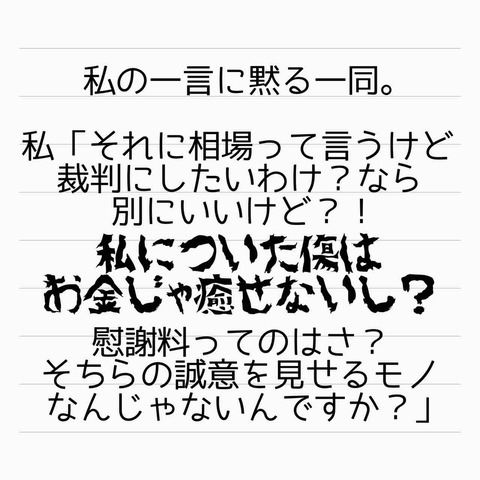 私の一言に黙る一同。
私「それに相場って言うけど
裁判にしたいわけ？なら
別にいいけど？！
私についた傷は
お金じゃ癒せないし？
慰謝料ってのはさ？
そちらの誠意を見せるモノ
なんじゃないんですか？」